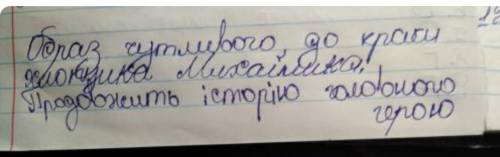 Образ чутливого до краси
хлопчика Михайлика.
Продовжить історію головного
герою